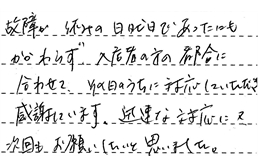 故障が休みの日曜日であったにも
かかわらず入居者の方の都合に
合わせて その日のうちに対応していただき
感謝しています。迅速な対応に又
次回も お願いしたいと思いました。